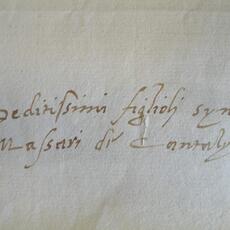 deditissimi figlioli syn
Massari di Cantaly